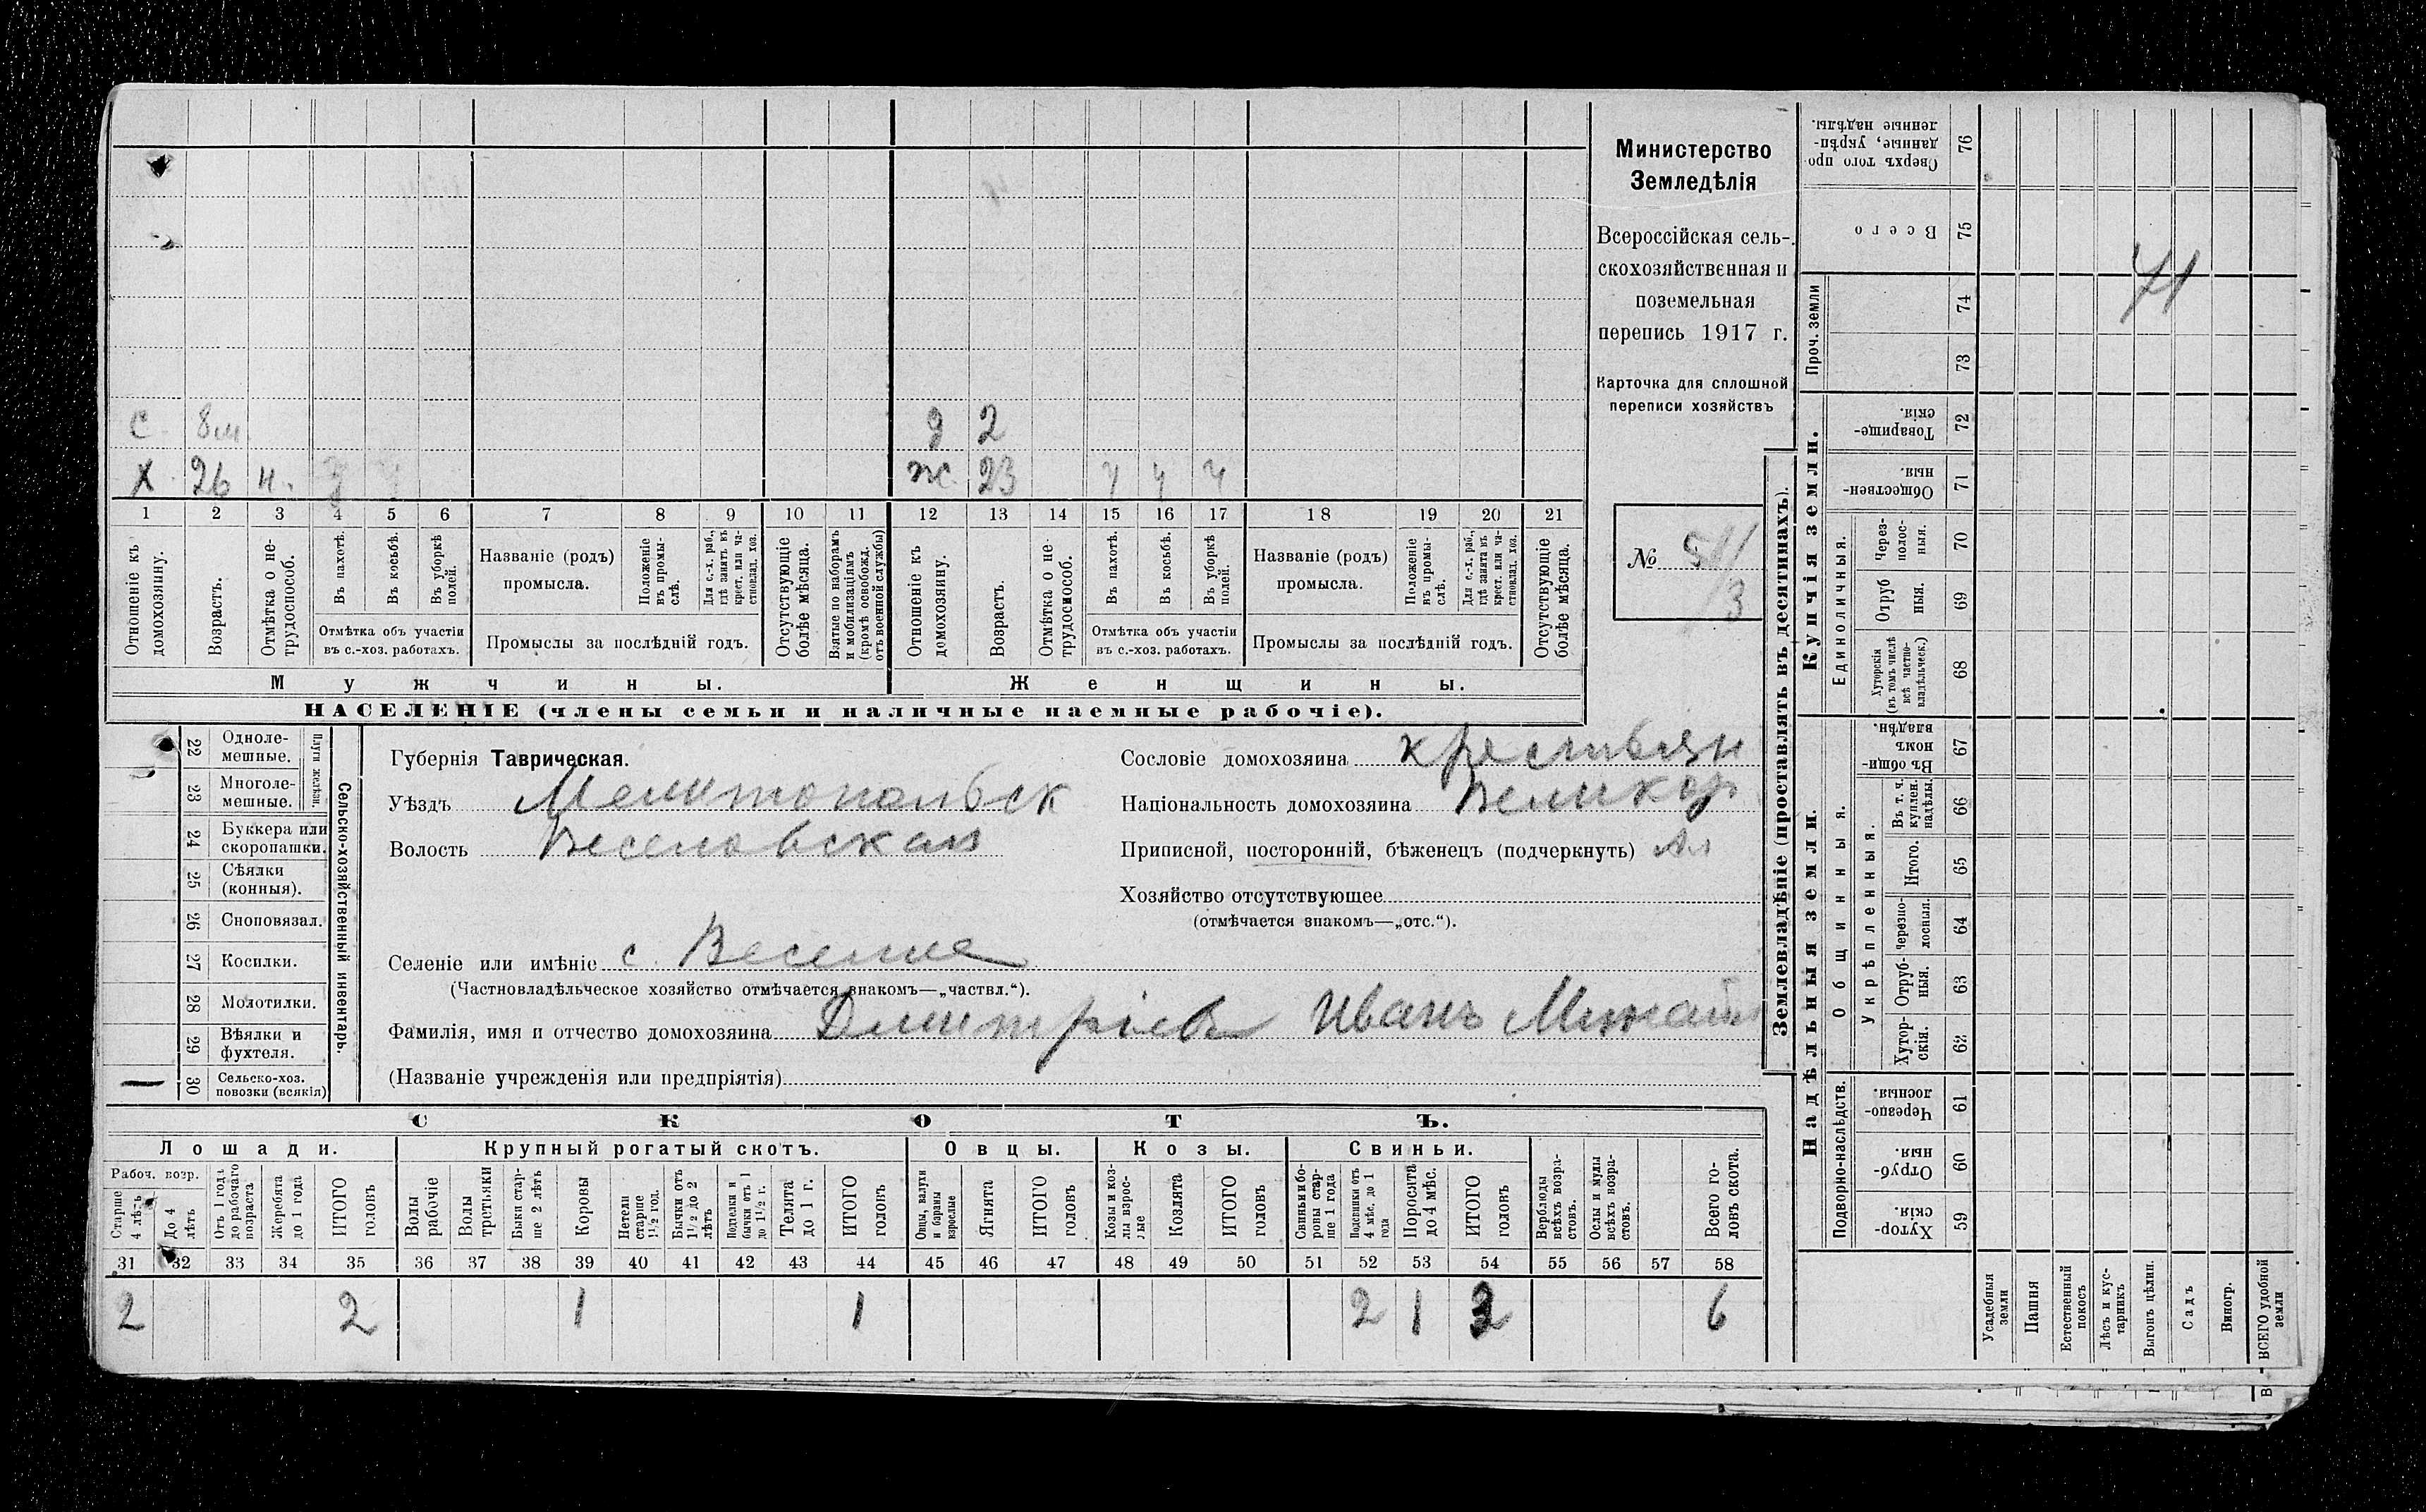 Министерство
Земледѣлія
Всероссійская сель-
скохозяйственная и
поземельная
перепись 1917 г.
Карточка для сплошной
переписи хозяйствъ
№ 511
13
С 8 м
д 2
Х 26 н.
ж. 23 ч ч ч
1 2 3 4 5 6 7 8 9 10 11 12 13 14 15 16 17 18 19 20 21
Отношеніе къ домохозяину.
Возрастъ.
Отмѣтка о не-трудоспособ.
Въ пахотѣ.
Въ косьбѣ.
Въ уборкѣ полей.
Отмѣтка объ участіи
въ с.-хоз. работахъ.
Названіе (родъ)
промысла.
Положеніе въ промы-слѣ.
Для с.-х. раб., гдѣ занятъ въ крест. или ча-стновлад. хоз.
Промыслы за послѣдній годъ.
Отсутствующіе болѣе мѣсяца.
Взятые по наборамъ и мобилизаціямъ (кромѣ освобожд. отъ военной службы)
Отношеніе къ домохозяину.
Возрастъ.
Отмѣтка о не-трудоспособ.
Въ пахотѣ.
Въ косьбѣ.
Въ уборкѣ полей.
Отмѣтка объ участіи
въ с.-хоз. работахъ.
Названіе (родъ)
промысла.
Положеніе въ промы-слѣ.
Для с.-х. раб., гдѣ занята въ крест. или ча-стновлад. хоз.
Промыслы за послѣдній годъ.
Отсутствующіе болѣе мѣсяца.
Мужчины.
Женщины.
НАСЕЛЕНІЕ (члены семьи и наличные наемные рабочіе).
22 Одноле-мешные.
23 Многоле-мешные.
Плуги желѣзн.
24 Буккера или скоропашки.
25 Сѣялки (конныя).
26 Сноповязал.
27 Косилки.
28 Молотилки.
29 Вѣялки и фухтеля.
30 Сельско-хоз. повозки (всякія)
—
Сельско-хозяйственный инвентарь.
Губернія Таврическая.
Уѣздъ Мелитопольск
Волость Веселовская
Селеніе или имѣніе с. Веселое
(Частновладѣльческое хозяйство отмѣчается знакомъ—„частвл.“).
Фамилія, имя и отчество домохозяина Дмитріевъ Иванъ Михайл
(Названіе учрежденія или предпріятія)
Сословіе домохозяина крестьян
Національность домохозяина Великор
Приписной, посторонній, бѣженецъ (подчеркнуть)
Хозяйство отсутствующее
(отмѣчается знакомъ—„отс.“).
СКОТЪ.
Лошади.
Крупный рогатый скотъ.
Овцы.
Козы.
Свиньи.
Рабоч. возр.
Старше 4 лѣтъ
До 4 лѣтъ
Отъ 1 года до рабочаго возраста
Жеребята до 1 года
ИТОГО головъ
Волы рабочіе
Волы третьяки
Быки стар-ше 2 лѣтъ
Коровы
Нетели старше 1½ год.
Бычки отъ 1½ до 2 лѣтъ
Подтелки и бычки отъ 1 до 1½ г.
Телята до 1 г.
ИТОГО головъ
Овцы, валухи и бараны взрослые
Ягнята
ИТОГО головъ
Козы и коз-лы взрос-лые
Козлята
ИТОГО головъ
Свиньи и бо-ровы стар-ше 1 года
Подсвинки отъ 4 мѣс. до 1 года
Поросята до 4 мѣс.
ИТОГО головъ
Верблюды всѣхъ возра-стовъ.
Ослы и мулы всѣхъ возра-стовъ.
Всего го-ловъ скота.
31 32 33 34 35 36 37 38 39 40 41 42 43 44 45 46 47 48 49 50 51 52 53 54 55 56 57 58
2 2 1 1 2 1 3 6
Землевладѣніе (проставлять въ десятинахъ).
Надѣльныя земли.
Купчія земли.
Проч. земли
Подворно-наслѣдств.
Общинныя.
Укрѣпленныя.
Единоличныя.
Сверхъ того про-данные, укрѣп-ленные надѣлы. 76
Всего 75
74
73
Товарище-скія. 72
Обществен-ныя. 71
Через-полос-ныя. 70
Отруб ныя. 69
Хуторскія (въ томъ числѣ всѣ частно-владѣльческ.) 68
Въ общин-номъ владѣн. 67
Въ т. ч. куплен. надѣлы. 66
Итого. 65
Черезпо-лосныя. 64
Отруб-ныя. 63
Хутор-скія. 62
Черезпо-лосныя. 61
Отруб-ныя. 60
Хутор-скія. 59
Усадебныя земли
Пашня
Естественный покосъ
Лѣсъ и кус-тарникъ
Выгонъ цѣлин.
Садъ
Виногр.
ВСЕГО удобной земли
71